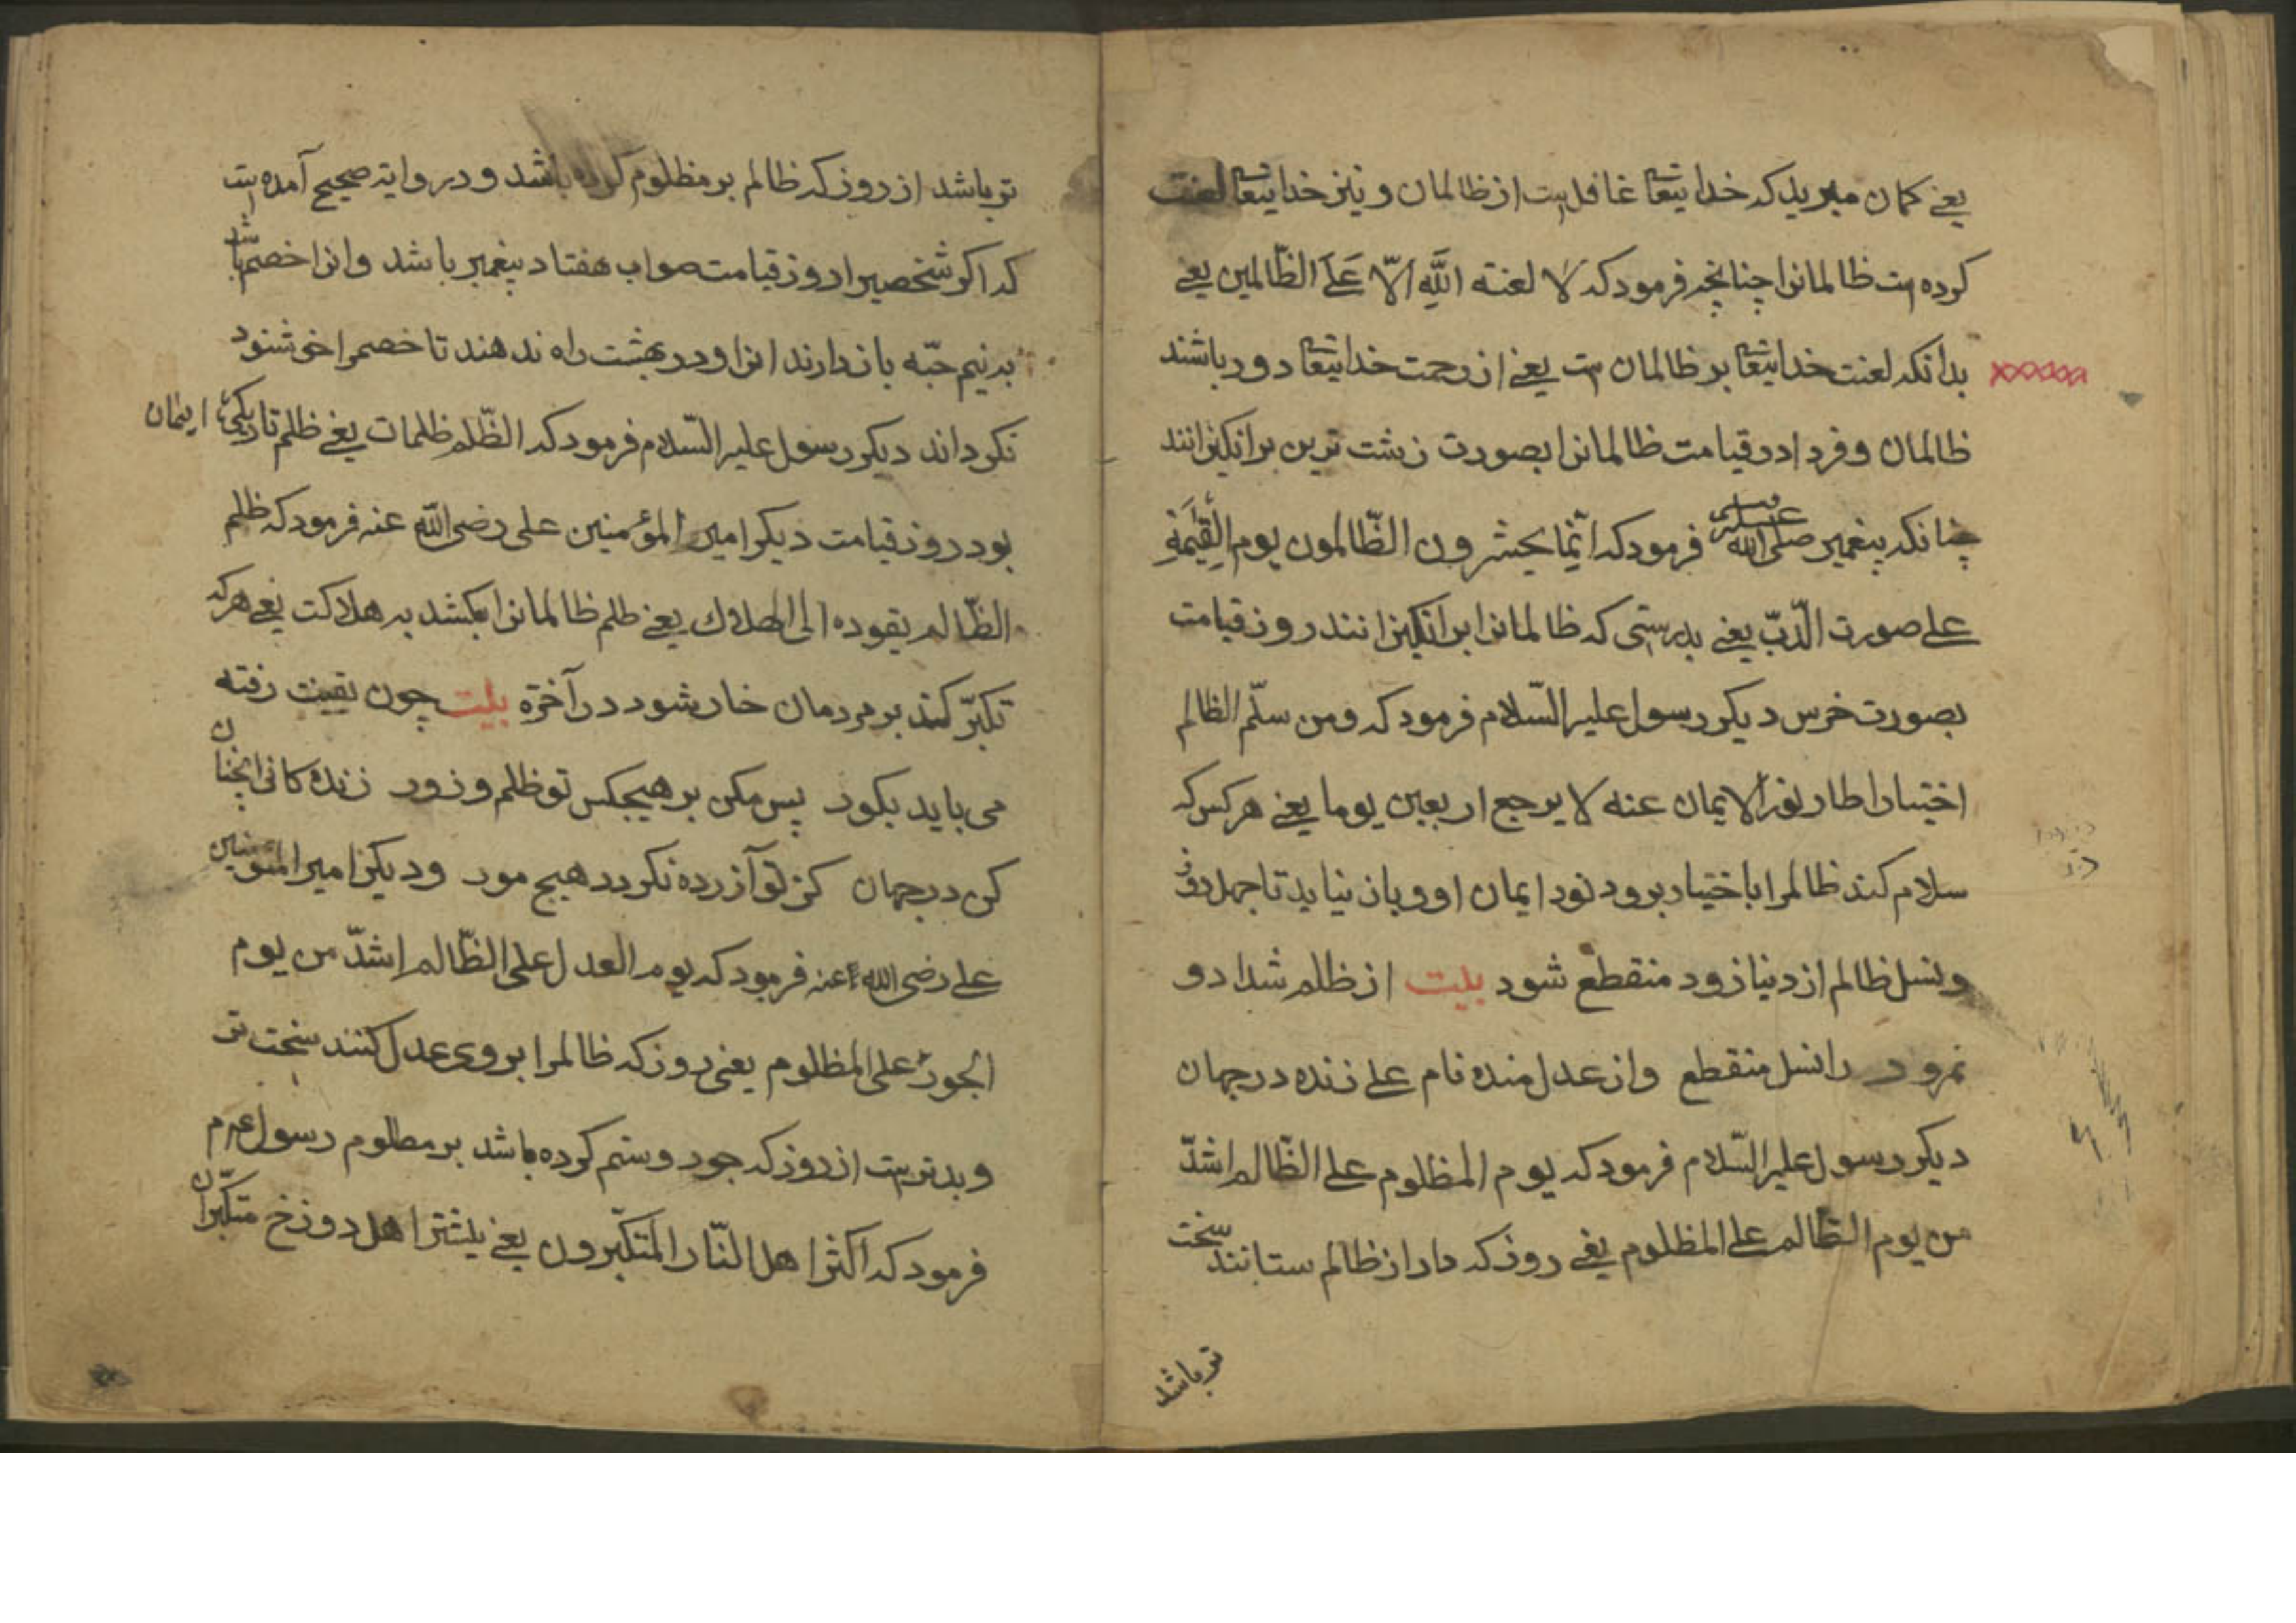 یعنی کمان مبرید که خدایتعا غافل است از ظالمان و نیز خدایتعا لعنت
کرده است ظالمانرا چنانچه فرمود که لا لعنته اللَّهِ الّا عَلَی الظّالمین یعنی
بدانکه لعنت خدایتعا بر ظالمان است یعنی از رحمت خدایتعا دور باشند
ظالمان و فردا در قیامت ظالمانرا بصورت زشت ترین برانکیزانند
چنانکه پیغمبر صلی الله علیه وسلم فرمود که انّما یحشرون الظّالمون یوم القِیٰمَةِ
علی صورت الدّبّ یعنی بدرستی که ظالمانرا برانکیزانند روز قیامت
بصورت خرس دیکر رسول علیه السّلام فرمود که ومن سلّم الظالم
اختیارا طار نور الایمان عنه لا یرجع اربعین یوما یعنی هر کس که
سلام کند ظالمرا باختیار برود نور ایمان او و باز نیاید تا چهل روز
و نسل ظالم از دنیا زود منقطع شود بیت از ظلم شداد و
نمرود را نسل منقطع واز عدل منده نام علی زنده در جهان
دیکر رسول علیه السّلام فرمود که یوم المظلوم علی الظّالم اشدّ
من یوم الظّالم علی المظلوم یعنی روز که داد از ظالم ستانند سخت
تر باشد
تر باشد از روز که ظالم بر مظلوم کرده باشد و در روایة صحیح آمده است
که اکر شخصیرا روز قیامت صواب هفتاد پیغمبر باشد وانرا خصم باشد
بدنیم حبّه باز دارند انرا و در بهشت راه ندهند تا خصمرا خوشنود
نکرداند دیکر رسول علیه السّلام فرمود که الظّلم ظلمات یعنی ظلم تاریکیٔ ایمان
بود روز قیامت دیکر امیر المؤمنین علی رضی الله عنه فرمود که ظلم
الظّالم یقوده الی الهلاک یعنی ظلم ظالمانرا بکشد به هلاکت یعنی هر که
تکبّر کند بر مردمان خار شود در آخرة بیت چون رفته
می باید بکور پس مکن بر هیچکس تو ظلم و زور زنده کانی انچنان
کن در جهان کز تو آزرده نکردد هیچ مور ودیکر امیر المئومنین
علی رضی الله عنه فرمود که یوم العدل علی الظّالم اشدّ من یوم
الجور علی المظلوم یعنی روز که ظالمرا بر وی عدل کنند سخت تر
و بدتر است از روز که جور وستم کرده باشد بر مظلوم رسول عم
فرمود که اکثر اهل النّار المتکبّرون یعنی بیشتر اهل دوزخ متکبّران